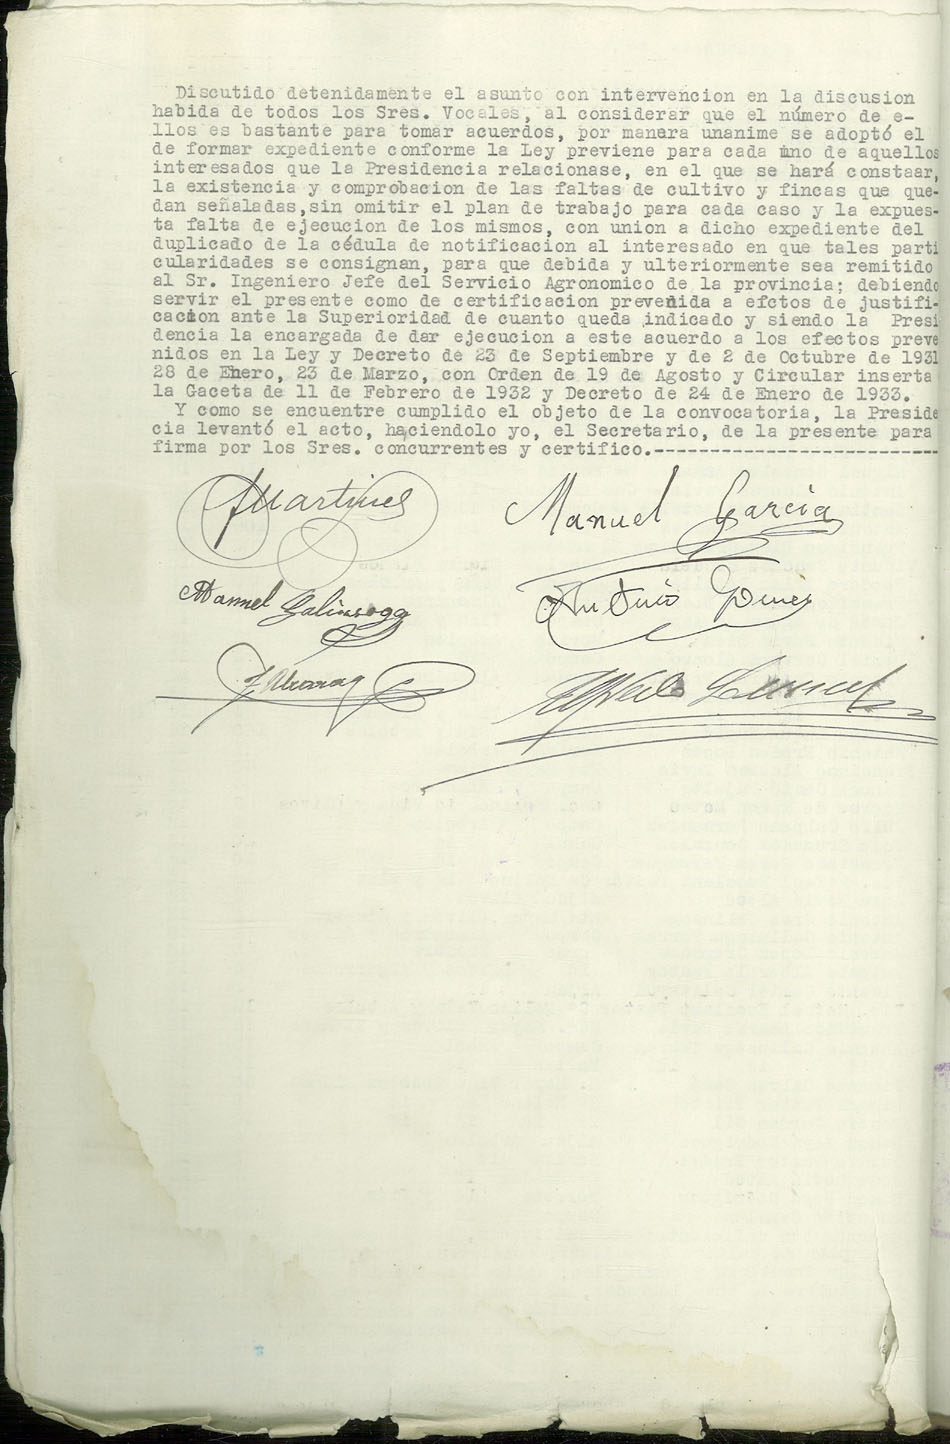 Discutido detenidamente el asunto con intervencion en la discusion
habida de todos los Sres. Vocales, al considerar que el número de e-
llos es bastante para tomar acuerdos, por manara unanime se adoptó el
de formar expediente conforme la Ley previene para cada uno de aquellos
interesados que la Presidencia relacionase, en el que se hará constaar,
la existencia y comprobacion de las faltas de cultivo y fincas que que-
dan señaladas,sin omitir el plan de trabajo para cada caso y la expues-
ta falta de ejecucion de los mismos, con union a dicho expediente del
duplicado de la cédula de notificacion al interesado en que tales parti
cularidades se consignan, para que debida y ulteriormente sea remitido
al Sr. Ingeniero Jefe del Servicio Agronomico de la provincia; debiendo
servir el presente como de certificacion prevenida a efctos de justifi-
cacion ante la Superioridad de cuanto queda indicado y siendo la Presi
dencia la encargada de dar ejecucion a este acuerdo a los efectos preve
nidos en la Ley y Decreto de 23 de Septiembre y de 2 de Octubre de 1931
28 de Enero, 23 de Marzo, con Orden de 19 de Agosto y Circular inserta
la Gaceta de 11 de Febrero de 1932 y Decreto de 24 de Enero de 1933.
Y como se encuentre cumplido el objeto de la convocatoria, la Preside
cia levantó el acto, haciendolo yo, el Secretario, de la presente para
firma por los Sres. concurrentes y certifico.-------------------------
Martines
Manuel Garcia
Manuel Galinsoga
Antonio Gomez